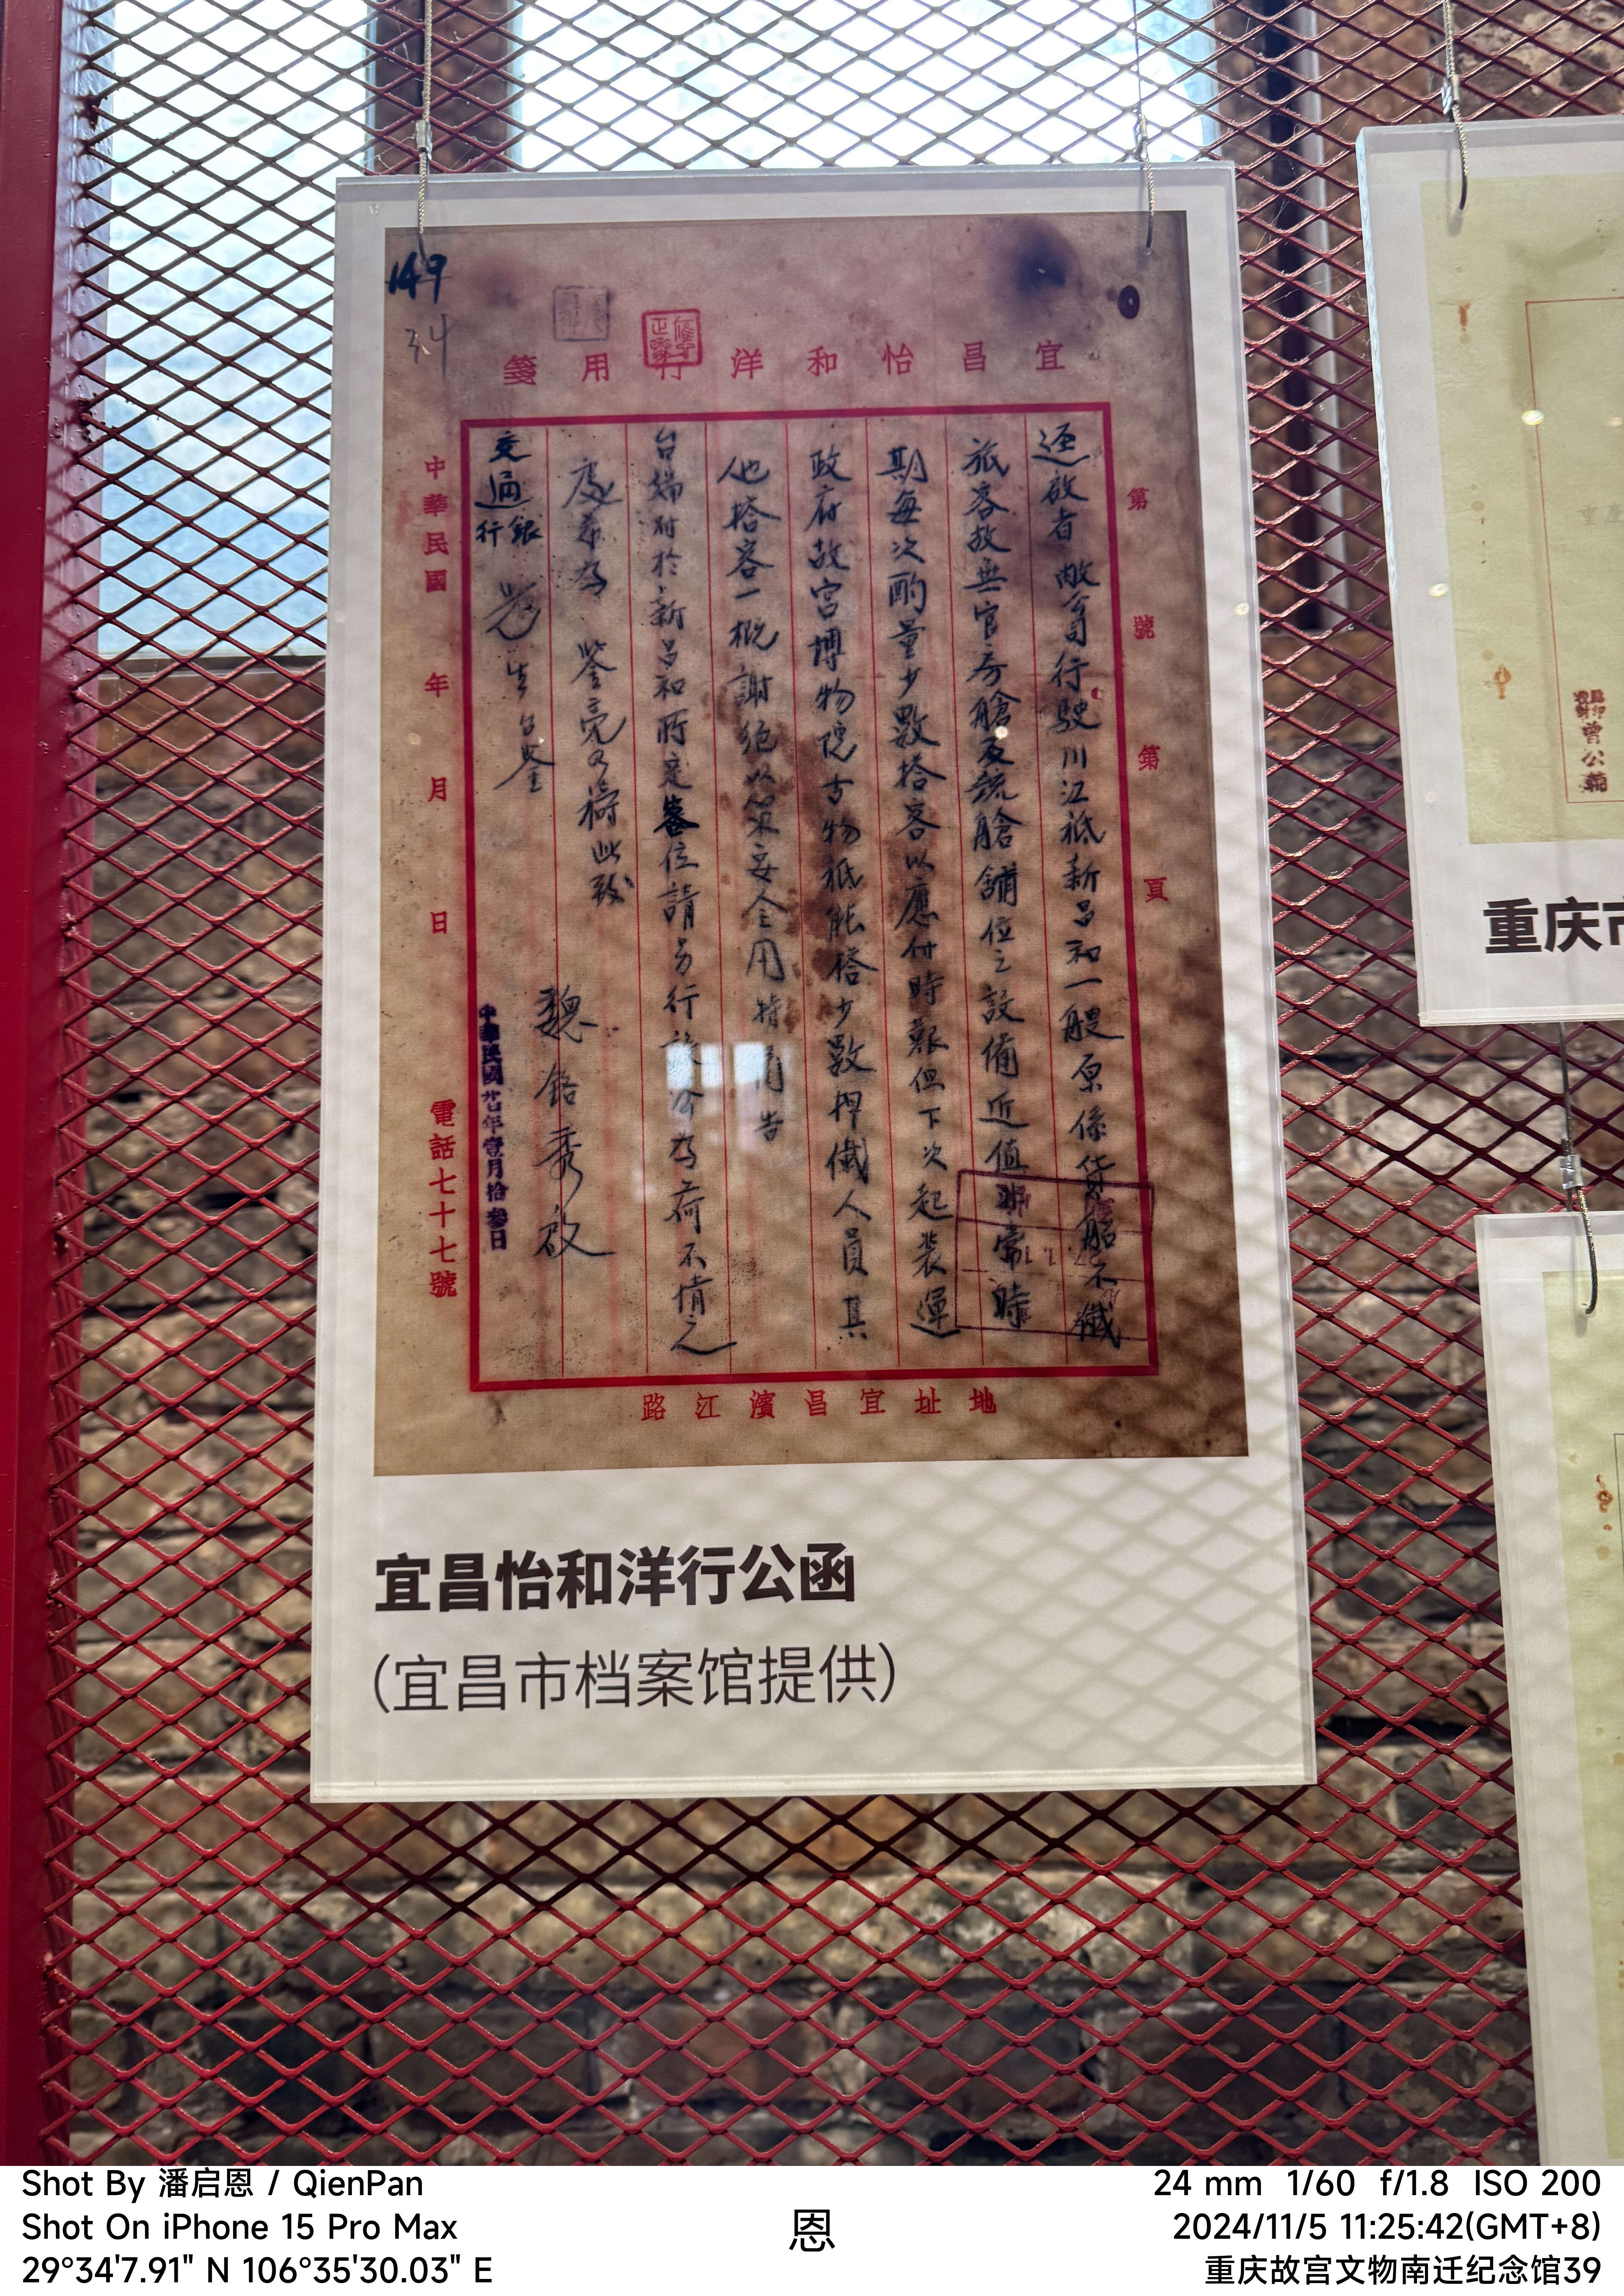 149
34
宜昌怡和洋行用箋
第 號 第 頁
逕啟者敝公司行駛川江祇新昌和一艘原係貨船不儎
旅客故無官房艙及統艙舖位之設備近值非常時
期每次酌量少數搭客以應付時艱但下次起裝運
政府故宮博物院古物祇能搭少數押儎人員其
他搭客一概謝絕以策安全用特函告
台端對於新昌和所定客位請另行設法為荷不情之
處希為鑒亮為禱此致
交通銀行 先生台鑒
魏銘秀啟
中華民國廿七年壹月拾參日
中華民國 年 月 日
電話七十七號
地址宜昌濱江路
宜昌怡和洋行公函
（宜昌市档案馆提供）
曾公
重庆市
Shot By 潘启恩 / QienPan
Shot On iPhone 15 Pro Max
29°34'7.91" N 106°35'30.03" E
恩
24 mm 1/60 f/1.8 ISO 200
2024/11/5 11:25:42(GMT+8)
重庆故宫文物南迁纪念馆39